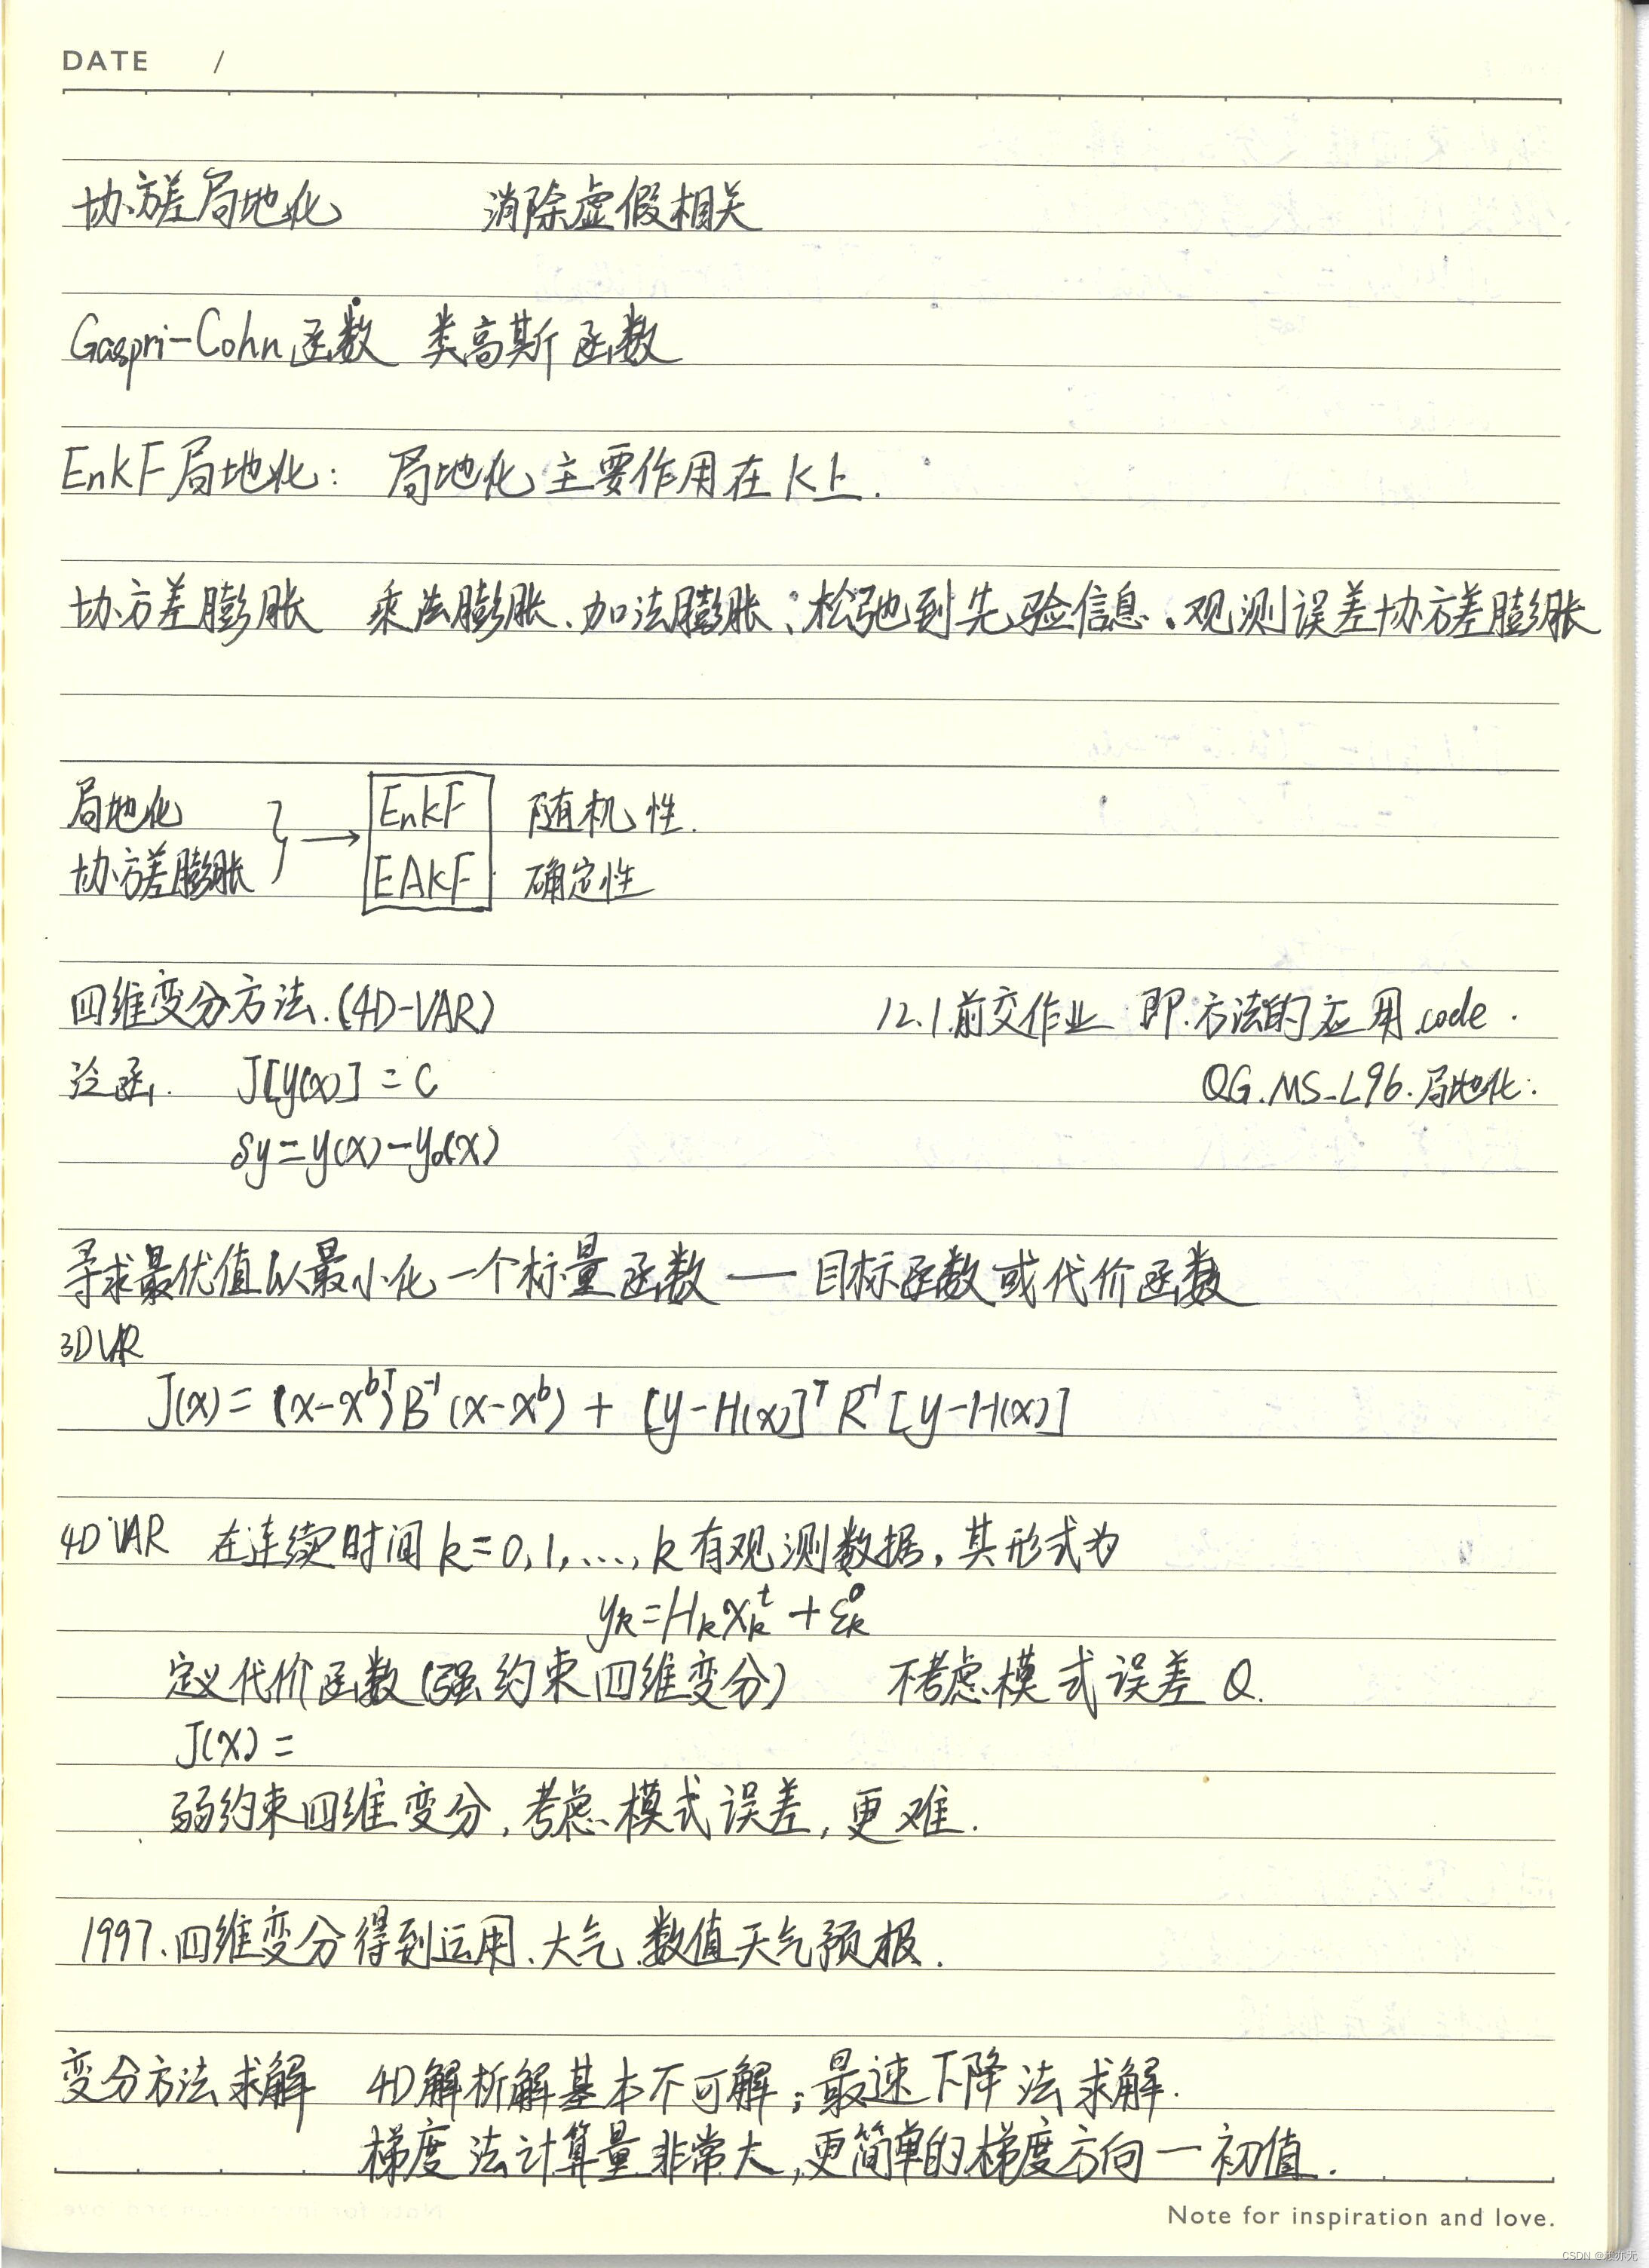 DATE /
协方差局地化 消除虚假相关
Gaspri-Cohn 函数 类高斯函数
EnKF局地化: 局地化主要作用在K上.
协方差膨胀 乘法膨胀、加法膨胀、松弛到先验信息、观测误差协方差膨胀
局地化 } → EnKF 随机性.
协方差膨胀 EAKF 确定性
四维变分方法.(4D-VAR) 12.1.前交作业 即.方法的应用.code.
泛函. J[y(x)] = C QG.MS-L96.局地化:
δy=y(x)-y₀(x)
寻求最优值以最小化一个标量函数——目标函数或代价函数
3DVAR
J(x) = (x-xᵇ)ᵀB⁻¹(x-xᵇ) + [y-H(x)]ᵀR⁻¹[y-H(x)]
4DVAR 在连续时间 k=0,1,...,k 有观测数据,其形式为
yₖ=Hₖxₖᵗ+εₖᵒ
定义代价函数(强约束四维变分) 不考虑模式误差Q.
J(x) =
弱约束四维变分,考虑模式误差,更难.
1997、四维变分得到运用、大气.数值天气预报.
变分方法求解 4D解析解基本不可解;最速下降法求解.
梯度法计算量非常大,更简单的梯度方向一初值.
Note for inspiration and love.